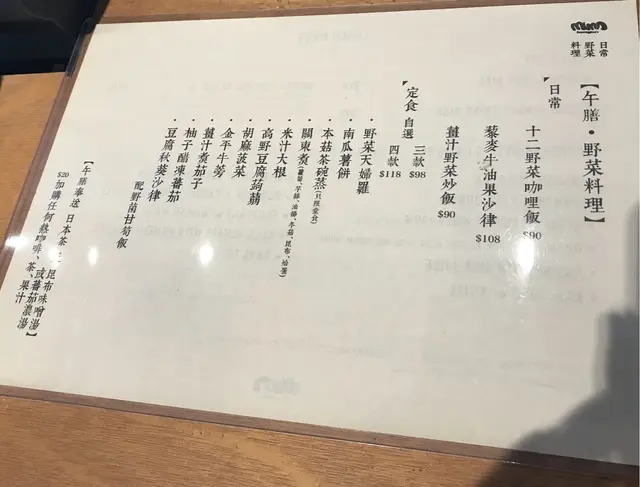 日常
野菜
料理
【午膳・野菜料理】
日常
十二野菜咖哩飯 $90
藜麥牛油果沙律 $108
薑汁野菜炒飯 $90
定食 自選 三款 $98
四款 $118
・野菜天婦羅
・南瓜薯餅
・本菇茶碗蒸(只限堂食)
・關東煮(蘿蔔、芋絲、油揚、冬菇、昆布、枱蛋)
・米汁大根
・高野豆腐蒟蒻
・胡麻菠菜
・金平牛蒡
・薑汁煮茄子
・柚子醋凍蕃茄
・豆腐秋葵沙律
配野菌甘筍飯
【午膳奉送 日本茶 昆布味噌湯
或蕃茄濃湯
$20加購任何熱咖啡、茶、果汁】